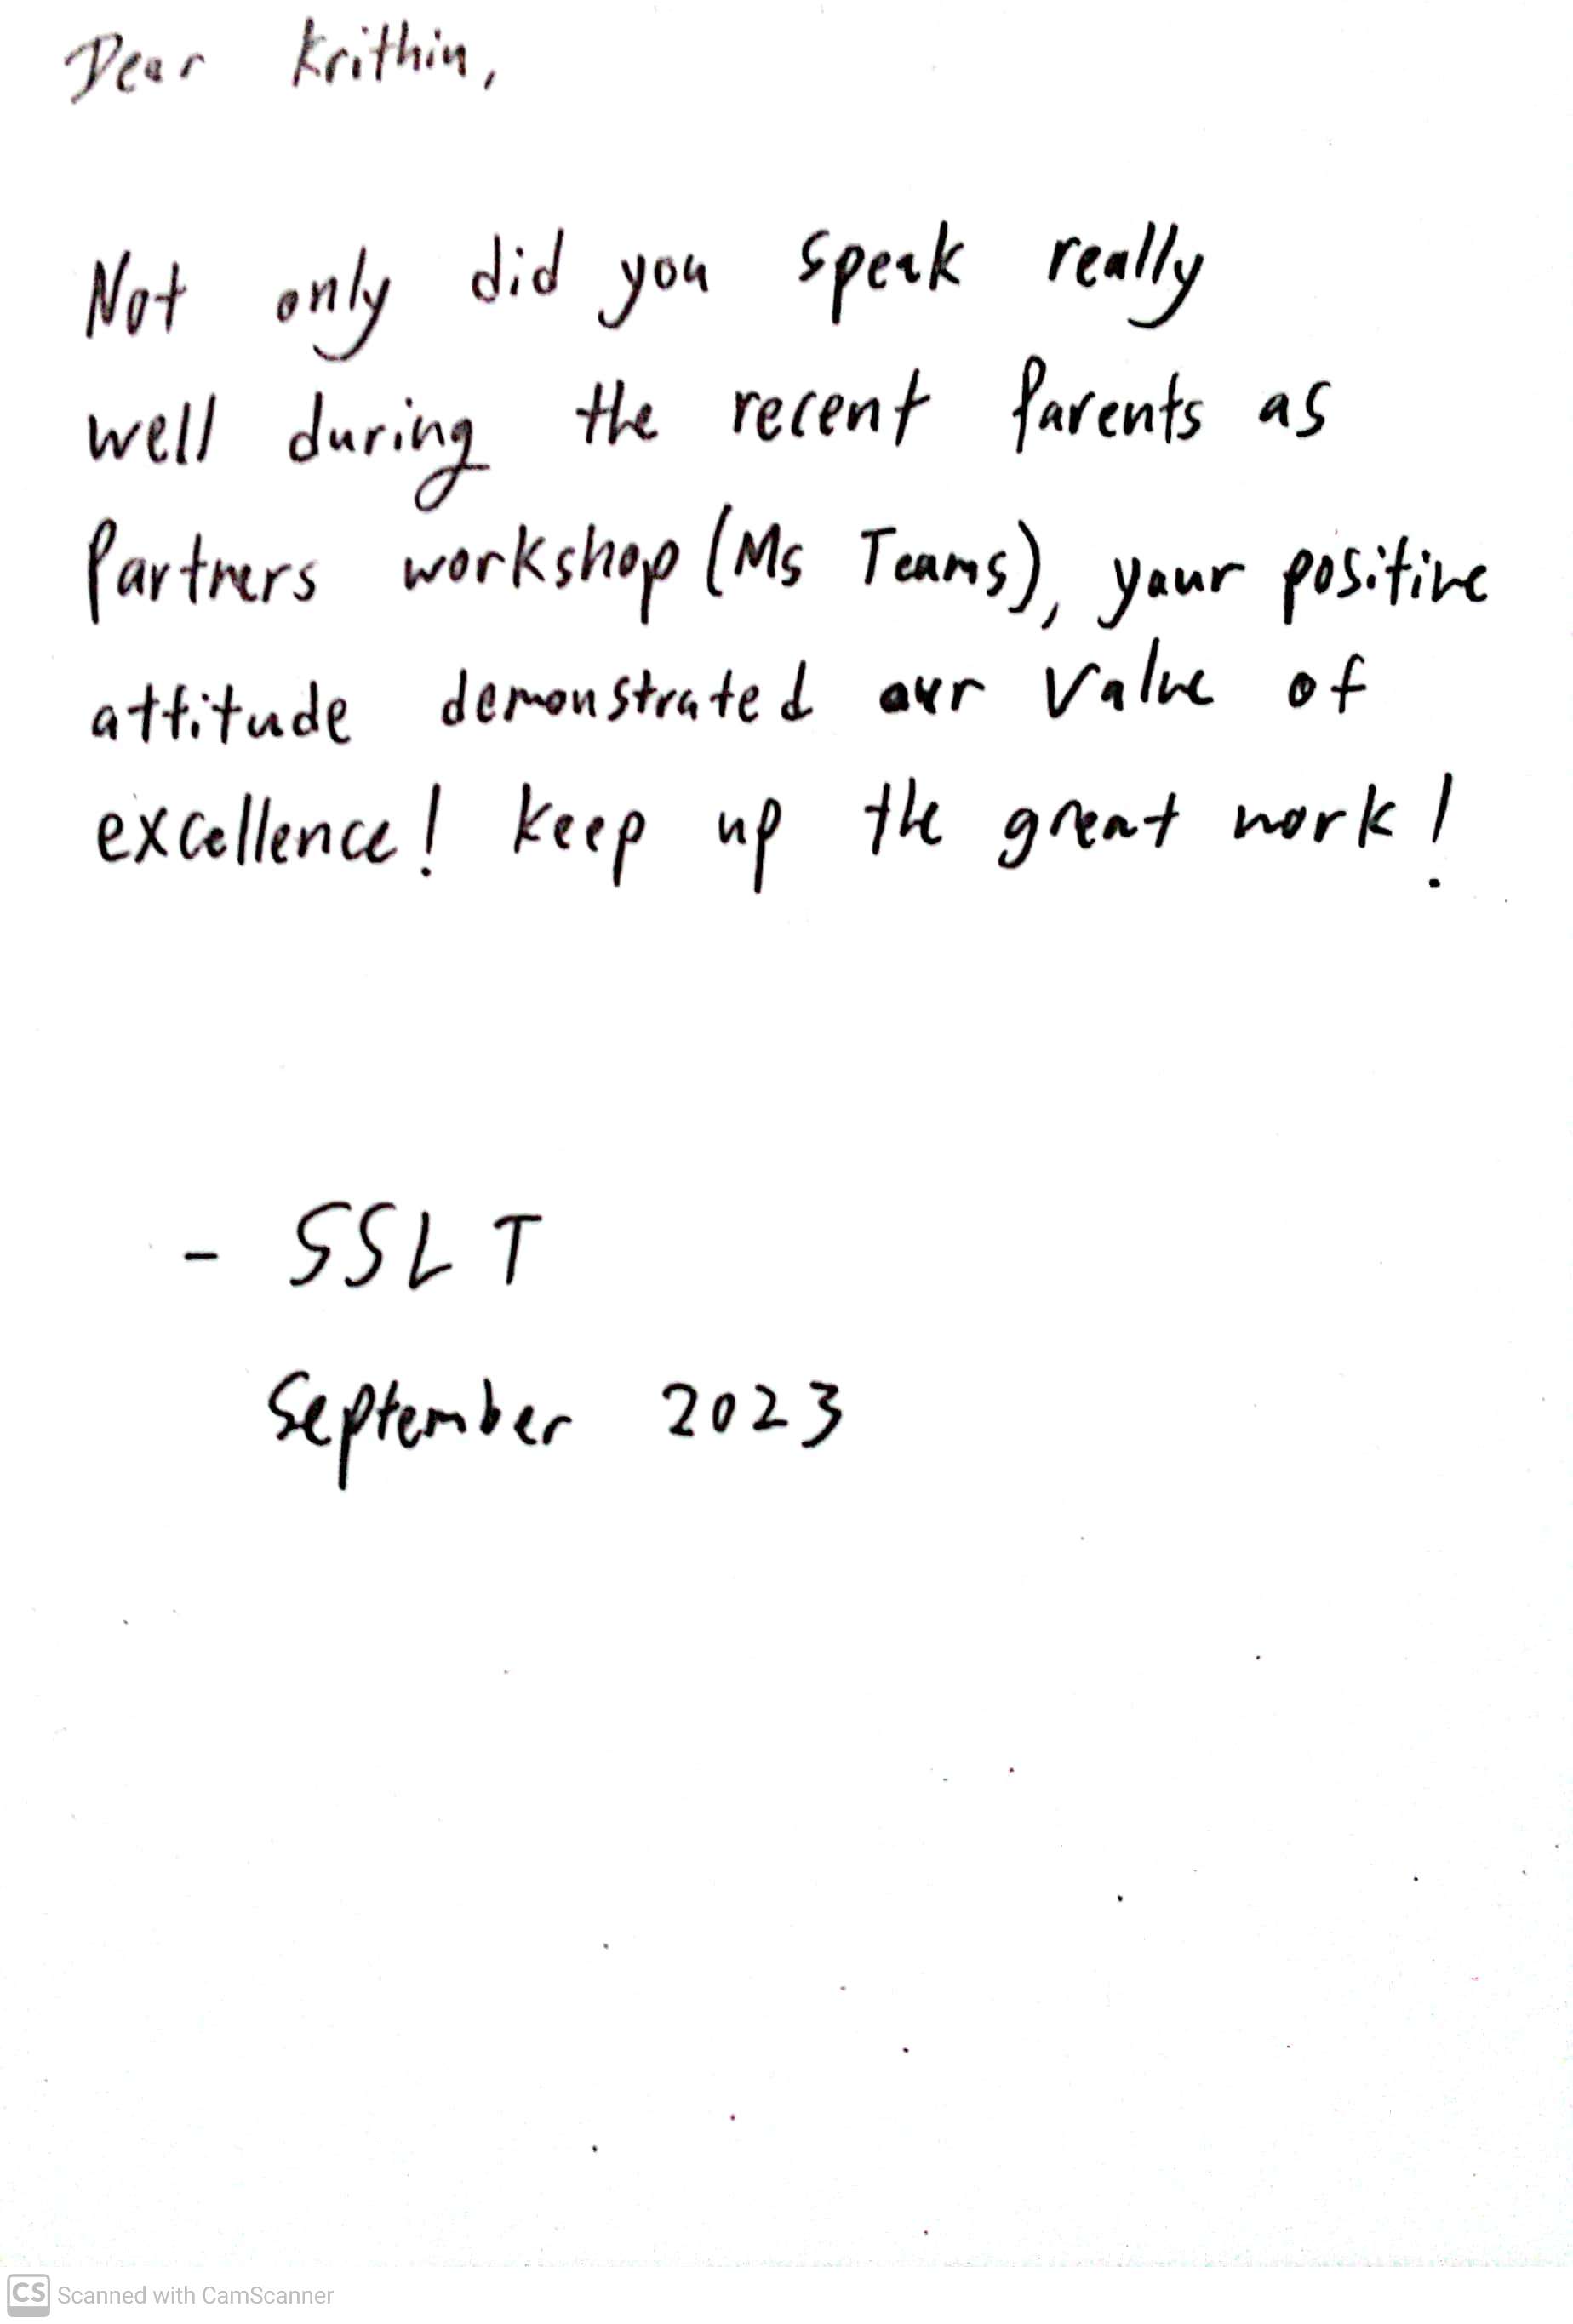 Dear Krithin,
Not only did you speak really
well during the recent Parents as
Partners workshop (Ms Teams), your positive
attitude demonstrated our value of
excellence! Keep up the great work!
- SSLT
September 2023
CS Scanned with CamScanner